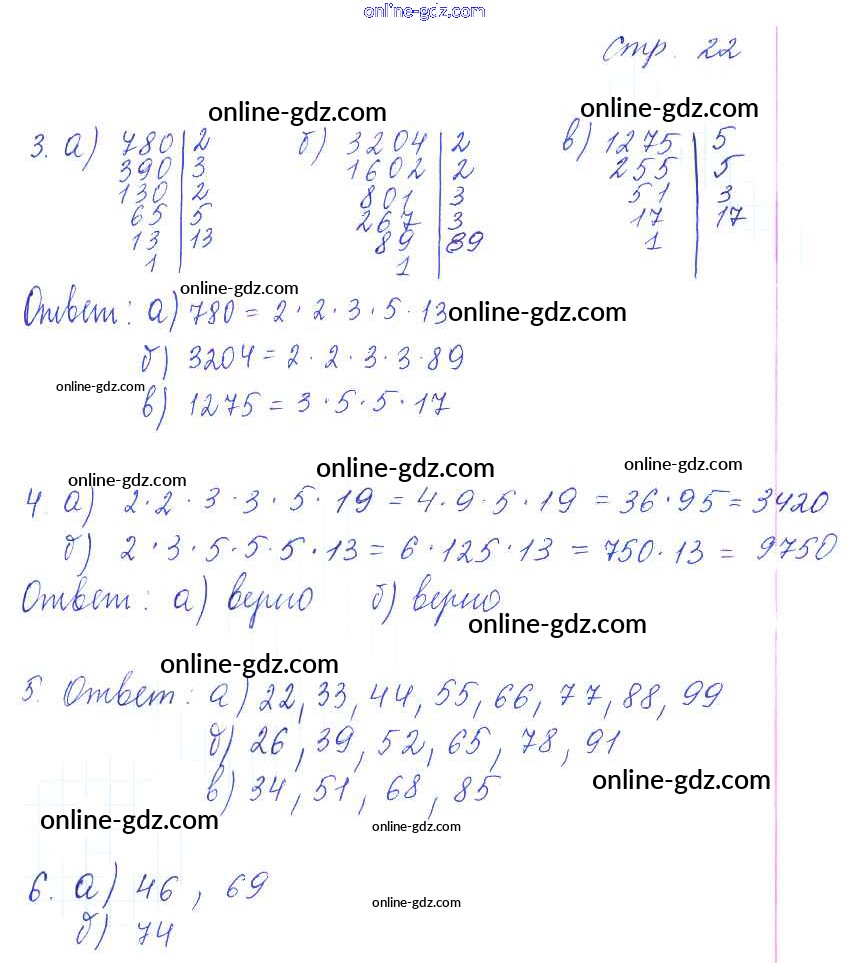 online-gdz.com
Стр. 22
online-gdz.com online-gdz.com
3. а) 780 | 2 б) 3204 | 2 в) 1275 | 5
390 | 3 1602 | 2 255 | 5
130 | 2 801 | 3 51 | 3
65 | 5 267 | 3 17 | 17
13 | 13 89 | 89 1
1 1
online-gdz.com
Ответ: а) 780 = 2 · 2 · 3 · 5 · 13 online-gdz.com
б) 3204 = 2 · 2 · 3 · 3 · 89
online-gdz.com
в) 1275 = 3 · 5 · 5 · 17
online-gdz.com online-gdz.com online-gdz.com
4. а) 2 · 2 · 3 · 3 · 5 · 19 = 4 · 9 · 5 · 19 = 36 · 95 = 3420
б) 2 · 3 · 5 · 5 · 5 · 13 = 6 · 125 · 13 = 750 · 13 = 9750
Ответ: а) верно б) верно
online-gdz.com
online-gdz.com
5. Ответ: а) 22, 33, 44, 55, 66, 77, 88, 99
б) 26, 39, 52, 65, 78, 91
в) 34, 51, 68, 85 online-gdz.com
online-gdz.com online-gdz.com
6. а) 46, 69
online-gdz.com
б) 74